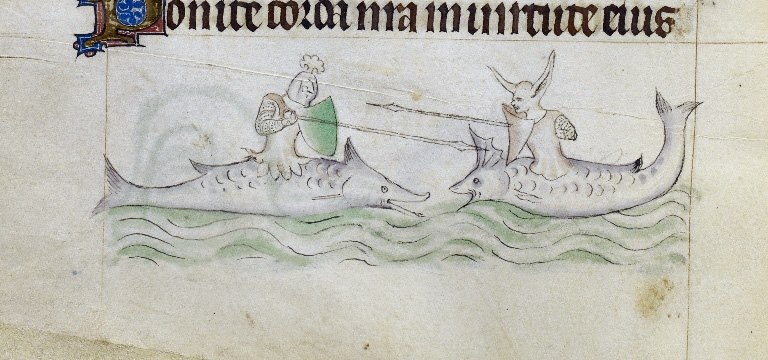 Ponite corda nra in uirtute eius